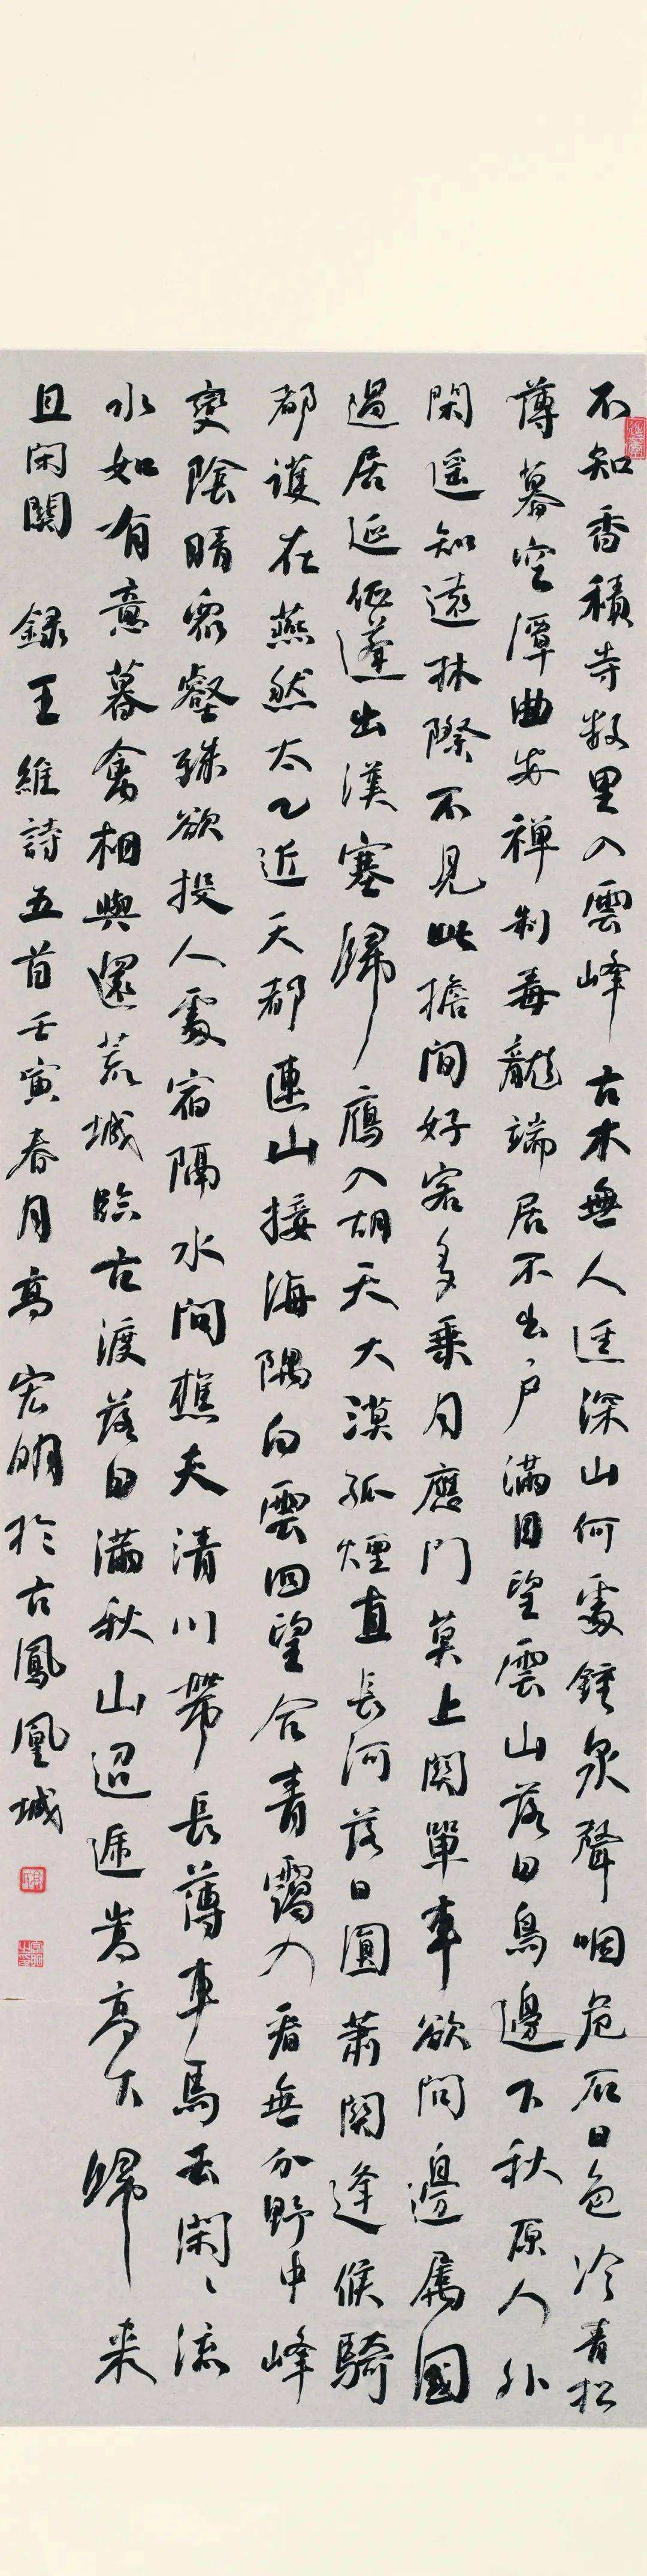 不知香積寺數里入雲峰古木無人逕深山何處鐘泉聲咽危石日色冷青松
薄暮空潭曲安禪制毒龍端居不出户滿目望雲山落日鳥邊下秋原人外
閑遥知遠林際不見此擔間好客多乘月應門莫上関單車欲問邊屬國
過居延征蓬出漢塞歸鴈入胡天大漠孤煙直長河落日圓蕭関逢候騎
都護在燕然太乙近天都連山接海隅白雲回望合青靄入看無分野中峰
變陰晴衆壑殊欲投人處宿隔水問樵夫清川帶長薄車馬去閑〻流
水如有意暮禽相與還荒城臨古渡落日滿秋山迢遞嵩高下歸来
且閑關 録王維詩五首壬寅春月高宏明於古鳳凰城